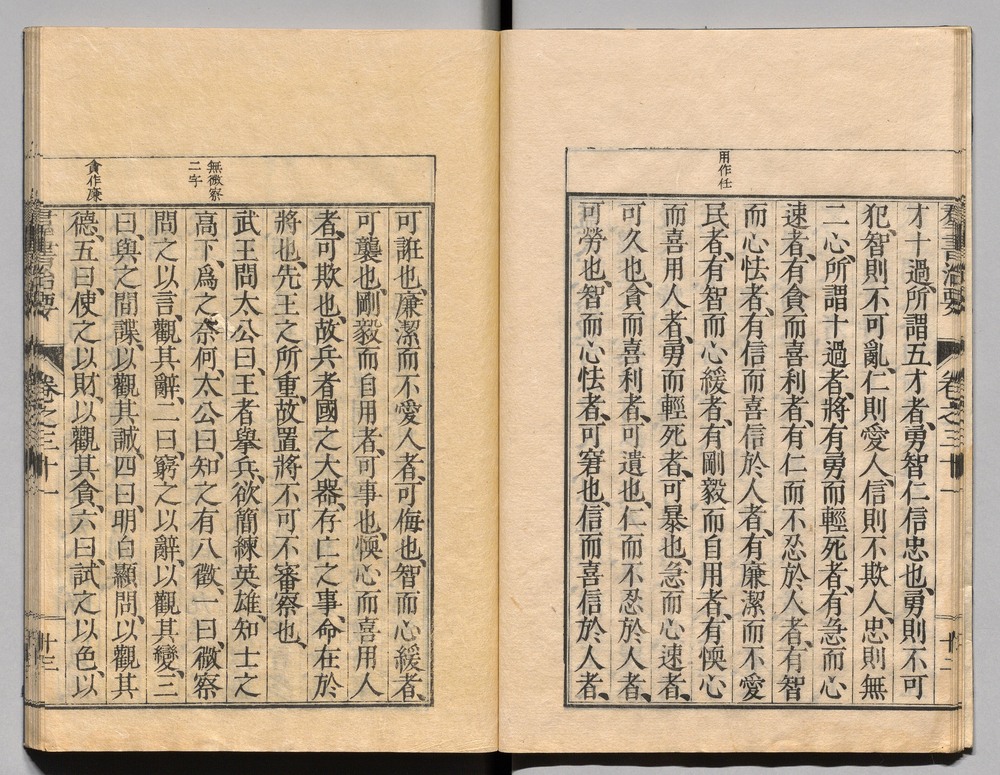 用作任
才十過、所謂五才者、勇智仁信忠也、勇則不可
犯、智則不可亂、仁則愛人、信則不欺人、忠則無
二心、所謂十過者、將有勇而輕死者、有急而心
速者、有貪而喜利者、有仁而不忍於人者、有智
而心怯者、有信而喜信於人者、有廉潔而不愛
民者、有智而心緩者、有剛毅而自用者、有愞心
而喜用人者、勇而輕死者、可暴也、急而心速者、
可久也、貪而喜利者、可遺也、仁而不忍於人者、
可勞也、智而心怯者、可窘也、信而喜信於人者、
羣書治要 卷之三十一 十二
無徵察
二字
貪作廉
可誑也、廉潔而不愛人者、可侮也、智而心緩者、
可襲也、剛毅而自用者、可事也、愞心而喜用人
者、可欺也、故兵者國之大器、存亡之事、命在於
將也、先王之所重、故置將不可不審察也、
武王問太公曰、王者舉兵、欲簡練英雄、知士之
高下、爲之奈何、太公曰、知之有八徵、一曰、微察
問之以言、觀其辭、二曰、窮之以辭、以觀其變、三
曰、與之間諜、以觀其誠、四曰、明白顯問、以觀其
德、五曰、使之以財、以觀其貪、六曰、試之以色、以
羣書治要 卷之三十一 十三